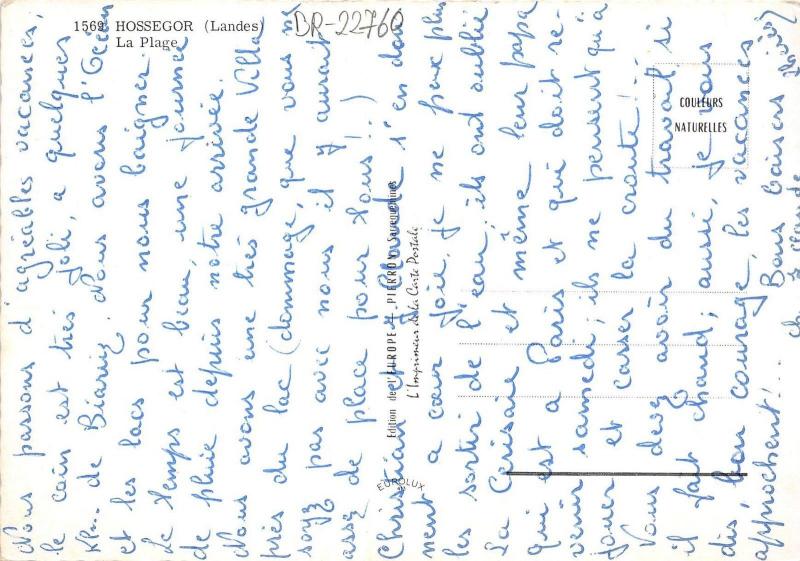 1569 HOSSEGOR (Landes)
La Plage
BR-22760
COULEURS
NATURELLES
Edition de l'EUROPE + PIERRON Sarreguemines
L'Imprimeur de la Carte Postale
EUROLUX
Nous passons d'agréables vacances,
le coin est très joli, a quelques
Klm. de Biarriz. Nous avons l'Océan
et les lacs pour nous baigner.
Le temps est beau, une journée
de pluie depuis notre arrivée.
Nous avons une très grande Villa
près du lac (dommage, que vous ne
soyez pas avec nous il y aurait
assez de place pour tous!!)
Christian et Claude s'en don
nent a cœur joie, je ne peux plus
les sortir de l'eau, ils ont oublié
La Cerisaie et même leur papa
qui est a Paris et qui doit re-
venir samedi; ils ne pensent qu'à
jouer et casser la croute!...
Vous devez avoir du travail si
il fait chaud; aussi, je vous
dis, bon courage, les vacances
approchent!... Bons baisers
Claude